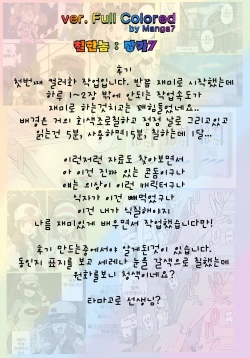 ver. Full Colored
by Manga7
후기
첫번째 컬러화 작업입니다. 반쯤 재미로 시작했는데
하루 1~2장 밖에 안되는 작업속도가
재미로 하는것치고는 꽤 힘들었네요..
배경은 거의 회색조로칠하고 점점 날로 그리고있고
읽는건 5분, 사용하면15분, 칠하는데 1달...
이런저런 자료도 찾아보면서
아 이건 진짜 있는 콘돔이구나
얘는 의상이 이런 캐릭터구나
식자가 이건 빼먹었구나
이건 내가 칠해야지
나름 재미있게 배우면서 작업했습니다만!
후기 만드는중에서야 알게된것이 있습니다.
동인지 표지를 보고 세레나 눈을 갈색으로 칠했는데
원화를보니 청색이네요?
타마고로 선생님?